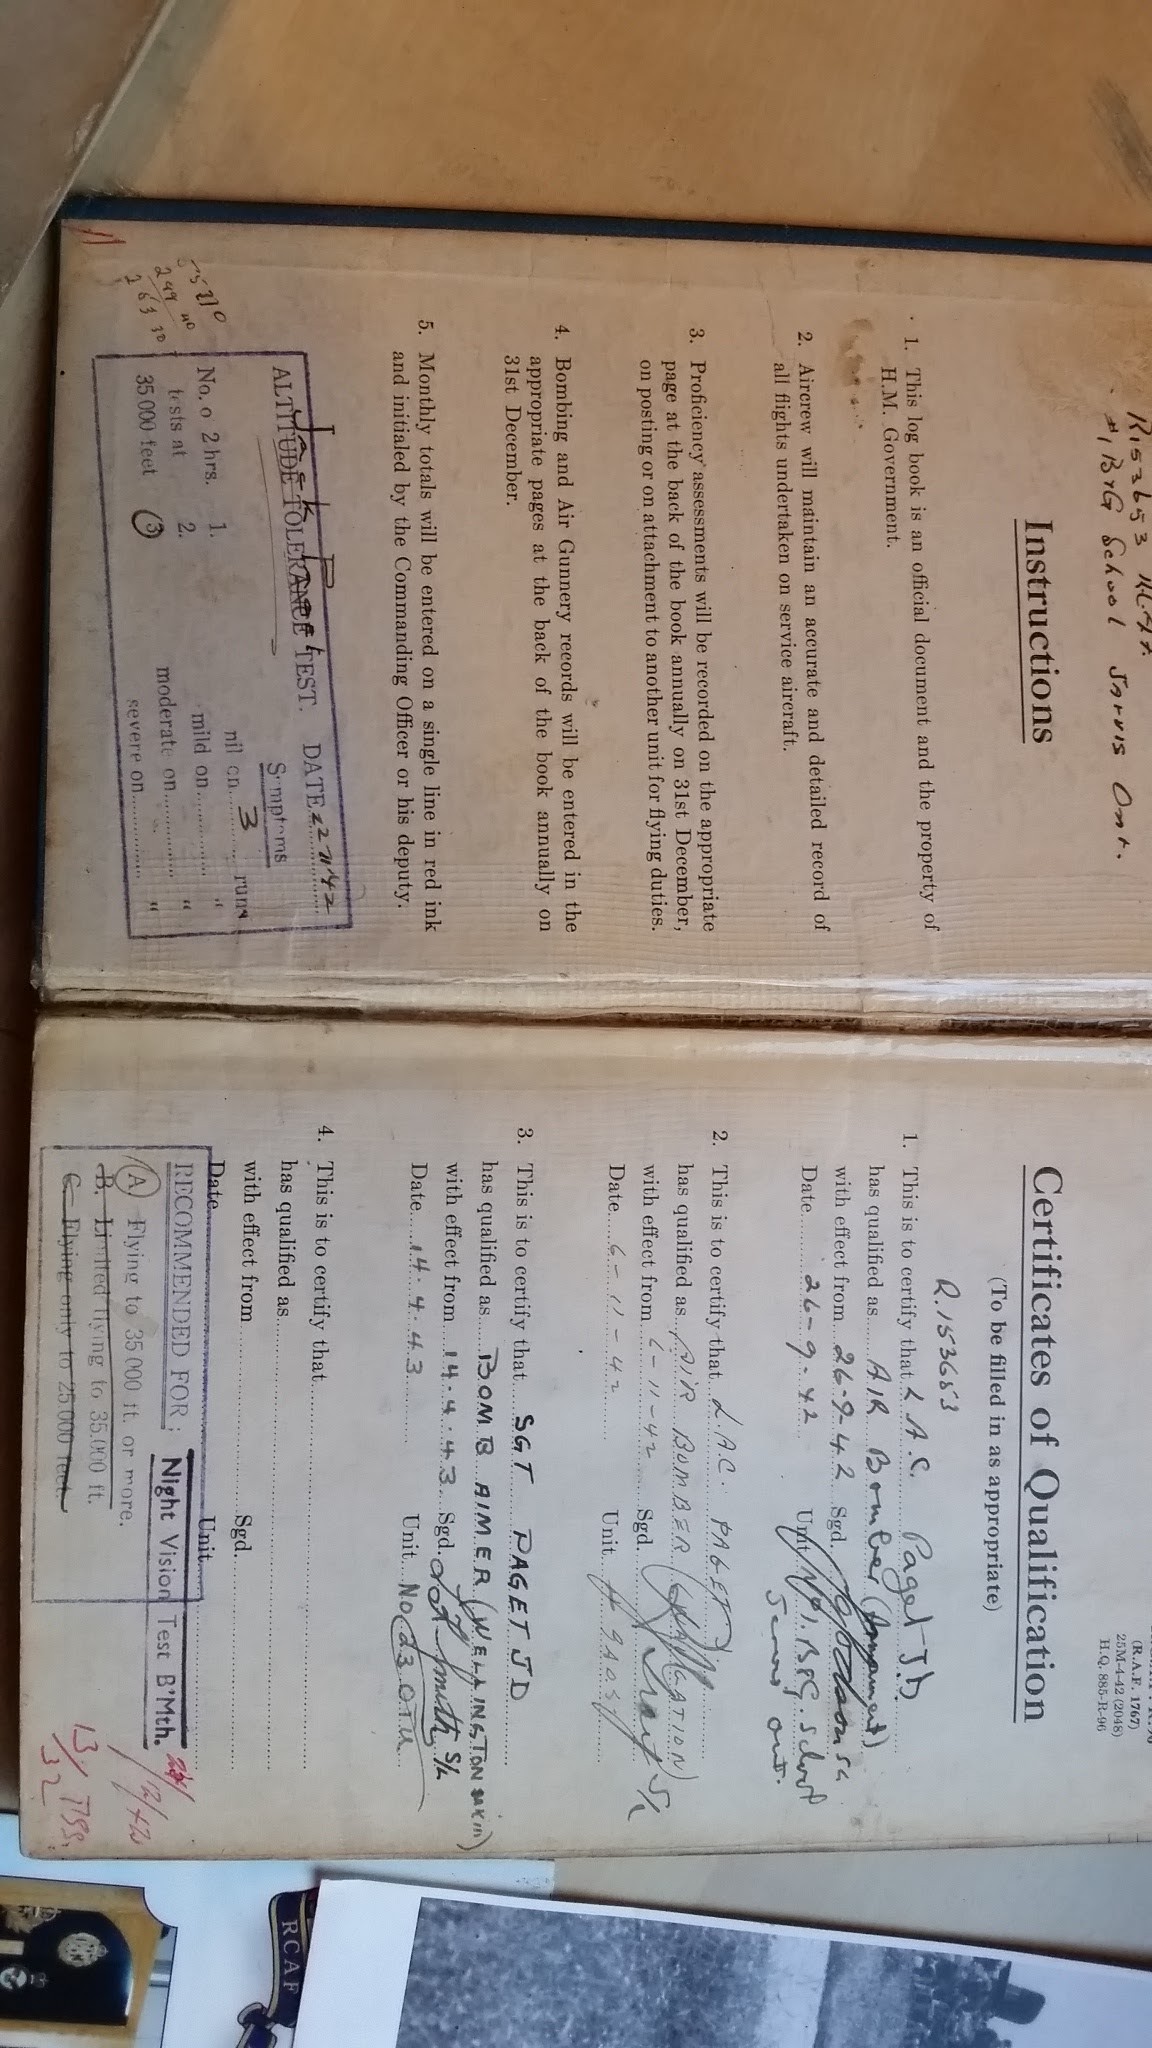 R153653 
#1 B&G School Jarvis Ont.
Instructions
1. This log book is an official document and the property of
H.M. Government.
2. Aircrew will maintain an accurate and detailed record of
all flights undertaken on service aircraft.
3. Proficiency assessments will be recorded on the appropriate
page at the back of the book annually on 31st December,
on posting or on attachment to another unit for flying duties.
4. Bombing and Air Gunnery records will be entered in the
appropriate pages at the back of the book annually on
31st December.
5. Monthly totals will be entered on a single line in red ink
and initialed by the Commanding Officer or his deputy.
Jack Paget
ALTITUDE TOLERANCE TEST. DATE 22 11 42
Symptoms
No. o 2 hrs. 1. nil on 3 runs
tests at 2. mild on............ "
35000 feet (3) moderate on............ "
severe on............ "
(R.A.F. 1767)
25M-4-42 (2048)
H.Q. 885-R-96
Certificates of Qualification
(To be filled in as appropriate)
R.153653
1. This is to certify that L.A.C. Paget J.D.
has qualified as AIR Bomber (Armament)
with effect from 26-9-42 Sgd.
Date 26-9-42 Unit No 1. B&G. School
Jarvis Ont.
2. This is to certify that L.A.C. PAGET
has qualified as AIR BOMBER (NAVIGATION)
with effect from 6-11-42 Sgd. S/L
Date 6-11-42 Unit # 9 AOS
3. This is to certify that SGT PAGET J D
has qualified as BOMB AIMER (WELLINGTON MK III)
with effect from 14.4.43 Sgd. Smith S/L
Date 14.4.43 Unit No 23 OTU
4. This is to certify that
has qualified as
with effect from Sgd.
Date Unit
RECOMMENDED FOR:
A. Flying to 35000 ft. or more.
B. Limited flying to 35,000 ft.
C. Flying only to 25000 feet.
Night Vision Test B'Mth.
/12/42
13/32
RCAF